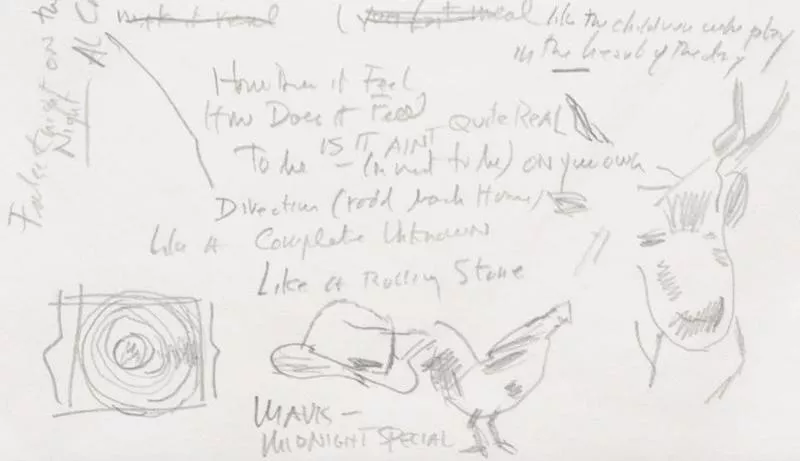 make it real
( you fat meal
like the children who play
in the heat of the day
How Does it Feel
How Does it Feel
IS IT AINT QUITE REAL
To be – (or not to be) ON your own
Direction (road back Home)
like A Complete Unknown
Like A Rolling Stone
MAVIS –
MIDNIGHT SPECIAL